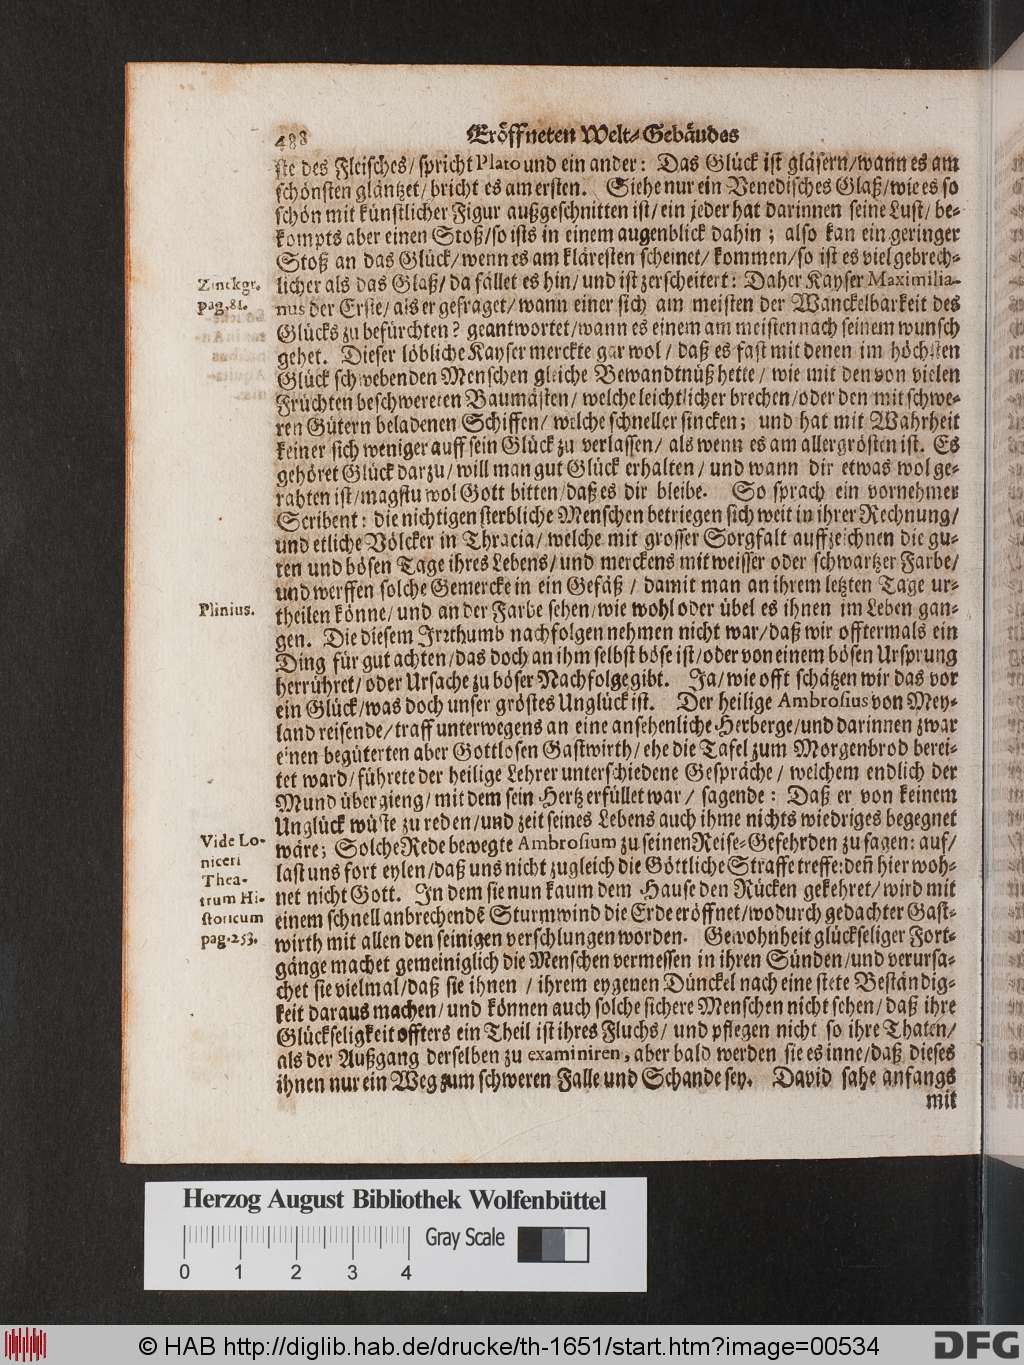 488 Eröffneten Welt-Gebäudes
ste des Fleisches/ spricht Plato und ein ander: Das Glück ist gläsern/ wann es am
schönsten gläntzet/ bricht es am ersten. Siehe nur ein Venedisches Glaß/ wie es so
schön mit künstlicher Figur außgeschnitten ist/ ein jeder hat darinnen seine Lust/ be-
kompts aber einen Stoß/ so ists in einem augenblick dahin; also kan ein geringer
Stoß an das Glück/ wenn es am kläresten scheinet/ kommen/ so ist es viel gebrech-
licher als das Glaß/ da fället es hin/ und ist zerscheitert: Daher Kayser Maximilia-
nus der Erste/ als er gefraget/ wann einer sich am meisten der Wanckelbarkeit des
Glücks zu befürchten? geantwortet/ wann es einem am meisten nach seinem wunsch
gehet. Dieser löbliche Kayser merckte gar wol/ daß es fast mit denen im höchsten
Glück schwebenden Menschen gleiche Bewandtnüß hette/ wie mit den von vielen
Früchten beschwereten Baumästen/ welche leichtlicher brechen/ oder den mit schwe-
ren Gütern beladenen Schiffen/ welche schneller sincken; und hat mit Wahrheit
keiner sich weniger auff sein Glück zu verlassen/ als wenn es am allergrösten ist. Es
gehöret Glück darzu/ will man gut Glück erhalten/ und wann dir etwas wol ge-
rahten ist/ magstu wol Gott bitten/ daß es dir bleibe. So sprach ein vornehmer
Scribent: die nichtigen sterbliche Menschen betriegen sich weit in ihrer Rechnung/
und etliche Völcker in Thracia/ welche mit grosser Sorgfalt auffzeichnen die gu-
ten und bösen Tage ihres Lebens/ und merckens mit weisser oder schwartzer Farbe/
und werffen solche Gemercke in ein Gefäß/ damit man an ihrem letzten Tage ur-
theilen könne/ und an der Farbe sehen/ wie wohl oder übel es ihnen im Leben gan-
gen. Die diesem Irrthumb nachfolgen nehmen nicht war/ daß wir offtermals ein
Ding für gut achten/ das doch an ihm selbst böse ist/ oder von einem bösen Ursprung
herrühret/ oder Ursache zu böser Nachfolge gibt. Ja/ wie offt schätzen wir das vor
ein Glück/ was doch unser gröstes Unglück ist. Der heilige Ambrosius von Mey-
land reisende/ traff unterwegens an eine ansehenliche Herberge/ und darinnen zwar
einen begüterten aber Gottlosen Gastwirth/ ehe die Tafel zum Morgenbrod berei-
tet ward/ führete der heilige Lehrer unterschiedene Gespräche/ welchem endlich der
Mund übergieng/ mit dem sein Hertz erfüllet war/ sagende: Daß er von keinem
Unglück wüste zu reden/ und zeit seines Lebens auch ihme nichts wiedriges begegnet
wäre; Solche Rede bewegte Ambrosium zu seinen Reise-Gefehrden zu sagen: auf/
last uns fort eylen/ daß uns nicht zugleich die Göttliche Straffe treffe: deñ hier woh-
net nicht Gott. In dem sie nun kaum dem Hause den Rücken gekehret/ wird mit
einem schnell anbrechendē Sturmwind die Erde eröffnet/ wodurch gedachter Gast-
wirth mit allen den seinigen verschlungen worden. Gewohnheit glückseliger Fort-
gänge machet gemeiniglich die Menschen vermessen in ihren Sünden/ und verursa-
chet sie vielmal/ daß sie ihnen/ ihrem eygenen Dünckel nach eine stete Beständig-
keit daraus machen/ und können auch solche sichere Menschen nicht sehen/ daß ihre
Glückseligkeit offters ein Theil ist ihres Fluchs/ und pflegen nicht so ihre Thaten/
als der Außgang derselben zu examiniren, aber bald werden sie es inne/ daß dieses
ihnen nur ein Weg zum schweren Falle und Schande sey. David sahe anfangs
mit
Zinckgr.
pag. 81.
Plinius.
Vide Lo-
niceri
Thea-
trum Hi-
storicum
pag. 253.
Herzog August Bibliothek Wolfenbüttel
Gray Scale
0 1 2 3 4
© HAB http://diglib.hab.de/drucke/th-1651/start.htm?image=00534
DFG